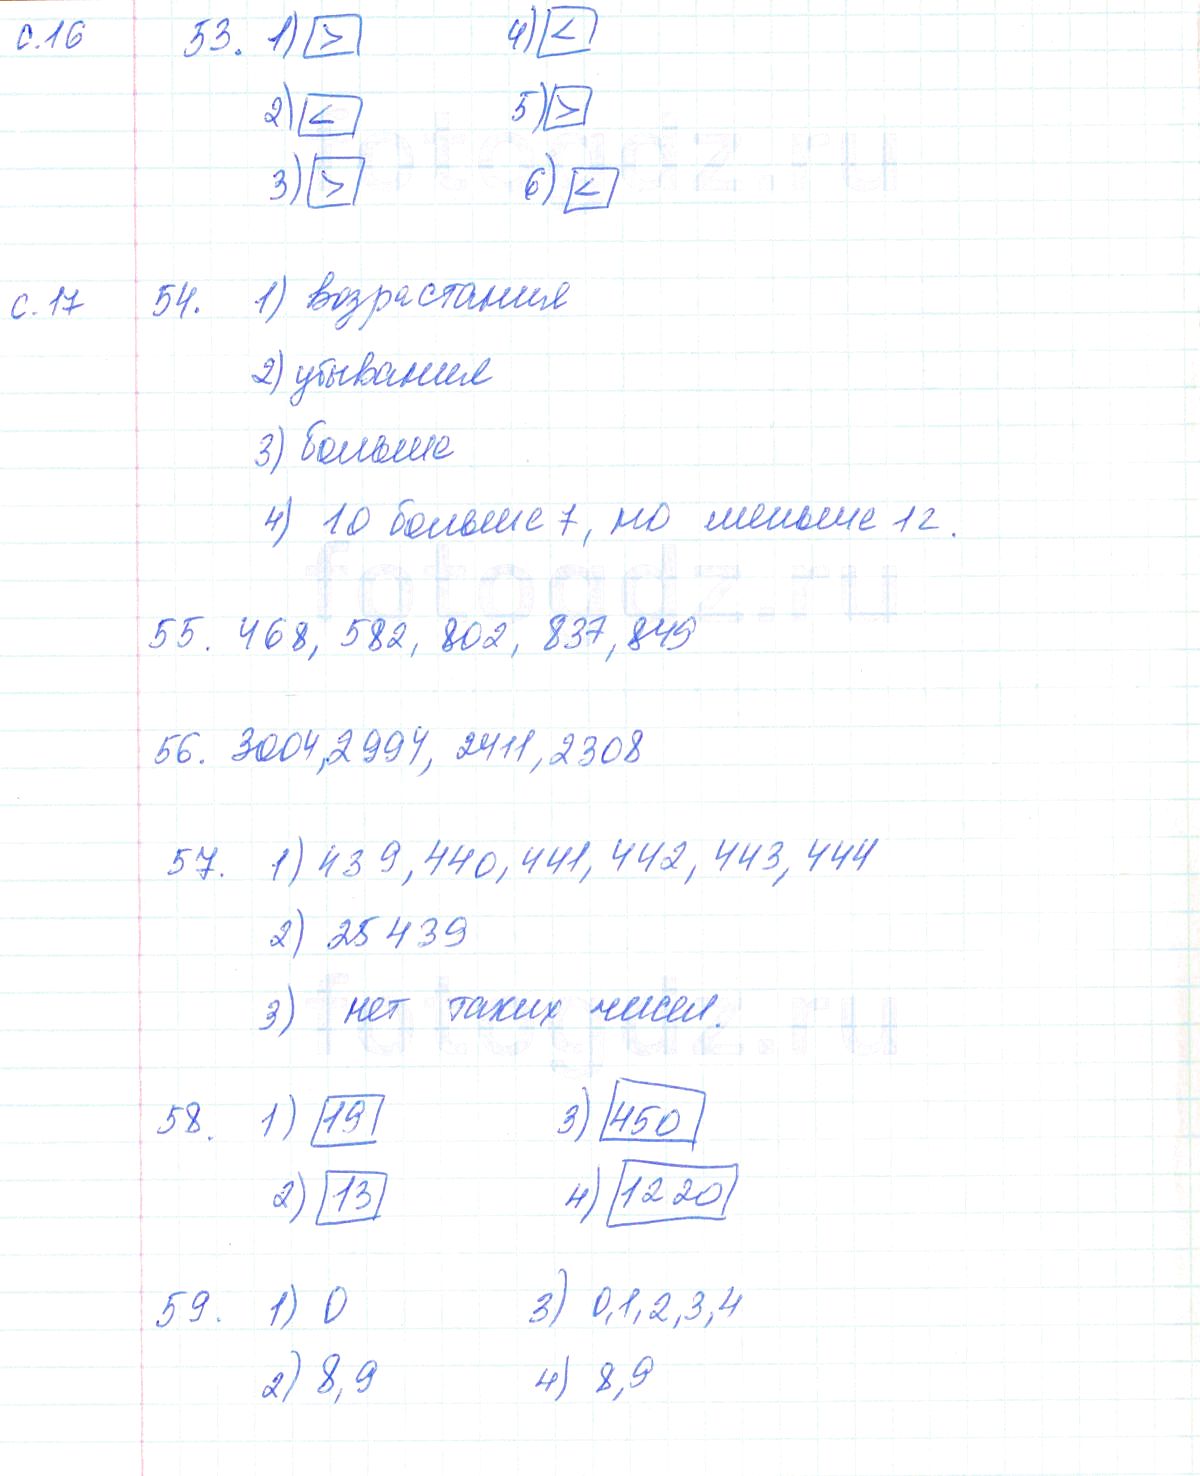 с.16 53. 1) > 4) <
2) < 5) >
3) > 6) <
с.17 54. 1) возрастания
2) убывания
3) больше
4) 10 больше 7, но меньше 12.
55. 468, 582, 802, 837, 849
56. 3004, 2994, 2411, 2308
57. 1) 439, 440, 441, 442, 443, 444
2) 25439
3) нет таких чисел.
58. 1) 19 3) 450
2) 13 4) 1220
59. 1) 0 3) 0,1,2,3,4
2) 8,9 4) 8,9
fotogdz.ru
fotogdz.ru
fotogdz.ru